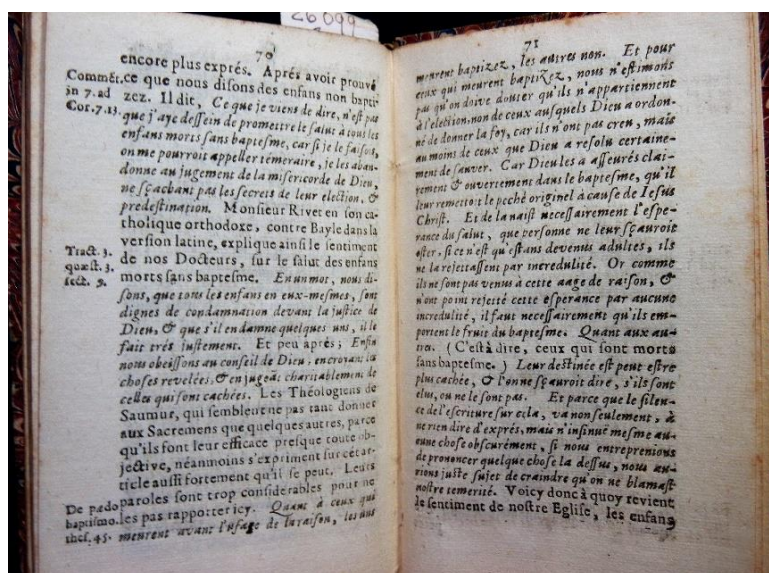 26099
70
encore plus exprés. Aprés avoir prouvé
Commēt. ce que nous disons des enfans non bapti-
in 7. ad zez. Il dit, Ce que je viens de dire, n'est pas
Cor. 7. 13. que j'aye dessein de promettre le salut à tous les
enfans morts sans baptesme, car si je le faisois,
on me pourroit appeller temeraire, je les aban-
donne au jugement de la misericorde de Dieu,
ne sçachant pas les secrets de leur election, &
predestination. Monsieur Rivet en son ca-
tholique orthodoxe, contre Bayle dans la
version latine, explique ainsi le sentiment
Tract. 3. de nos Docteurs, sur le salut des enfans
quæst. 3. morts sans baptesme. En un mot, nous di-
sect. 9. sons, que tous les enfans en eux-mesmes, sont
dignes de condamnation devant la justice de
Dieu, & que s'il en damne quelques uns, il le
fait trés justement. Et peu aprés; Enfin
nous obeïssons au conseil de Dieu, en croyant les
choses revelées, & en jugeāt charitablement de
celles qui sont cachées. Les Théologiens de
Saumur, qui semblent ne pas tant donner
aux Sacremens que quelques autres, parce
qu'ils font leur efficace presque toute ob-
jective, néanmoins s'expriment sur cét ar-
ticle aussi fortement qu'il se peut. Leurs
De pædo paroles sont trop considerables pour ne
baptismo. les pas rapporter icy. Quant à ceux qui
thes. 45. meurent avant l'usage de la raison, les uns
71
meurent baptizez, les autres non. Et pour
ceux qui meurent baptizez, nous n'estimons
pas qu'on doive douter qu'ils n'appartiennent
à l'election: non de ceux ausquels Dieu a ordon-
né de donner la foy, car ils n'ont pas creu, mais
au moins de ceux que Dieu a resolu certaine-
ment de sauver. Car Dieu les a asseurés clai-
rement & ouvertement dans le baptesme, qu'il
leur remettoit le peché originel à cause de Iesus
Christ. Et de la naist necessairement l'espe-
rance du salut, que personne ne leur sçauroit
oster, si ce n'est qu'estans devenus adultes, ils
ne la rejettassent par incredulité. Or comme
ils ne sont pas venus à cette aage de raison, &
n'ont point rejetté cette esperance par aucune
incredulité, il faut necessairement qu'ils em-
portent le fruit du baptesme. Quant aux au-
tres. (C'est à dire, ceux qui sont morts
sans baptesme.) Leur destinée est peut estre
plus cachée, & l'on ne sçauroit dire, s'ils sont
elus, ou ne le sont pas. Et parce que le silen-
ce de l'escriture sur cela, va non seulement, à
ne rien dire d'exprés, mais n'insinue mesme au-
cune chose obscurément, si nous entreprenions
de prononcer quelque chose la dessus, nous au-
rions juste sujet de craindre qu'on ne blamast
nostre temerité. Voicy donc à quoy revient
le sentiment de nostre Eglise, les enfans